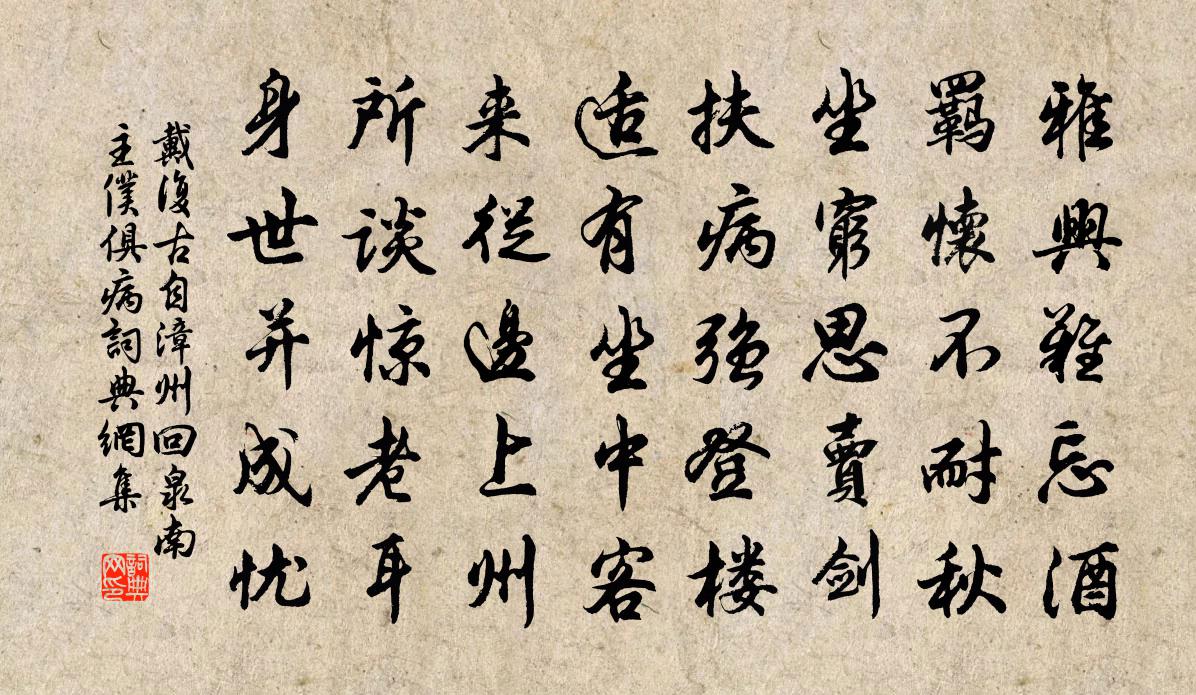 雅興難忘酒
羈懷不耐秋
坐窮思賣劍
扶病強登楼
适有坐中客
来從邊上州
所談惊老耳
身世并成忧
戴復古自漳州回泉南
主僕俱病詞典網集
詞典
网印